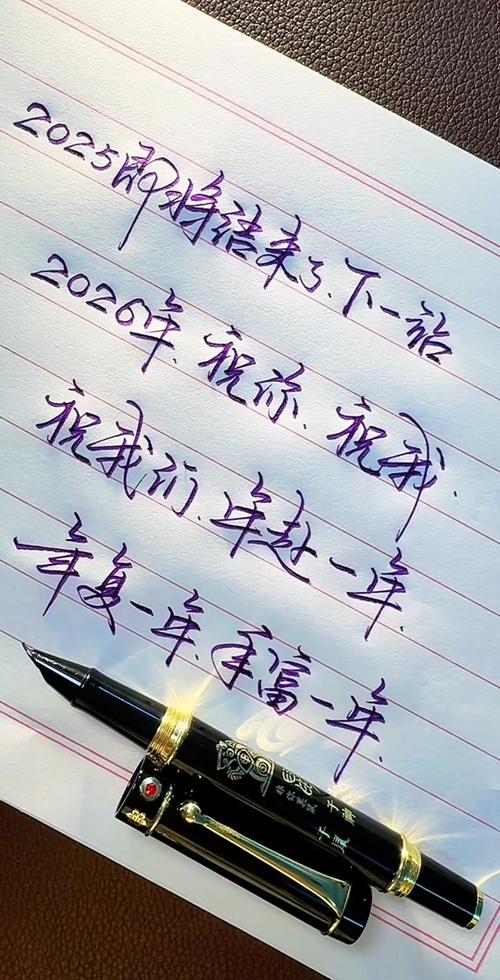 2025即将结束了、下一站
2026年、祝你、祝我、
祝我们、年赴一年、
年复一年、年富一年、